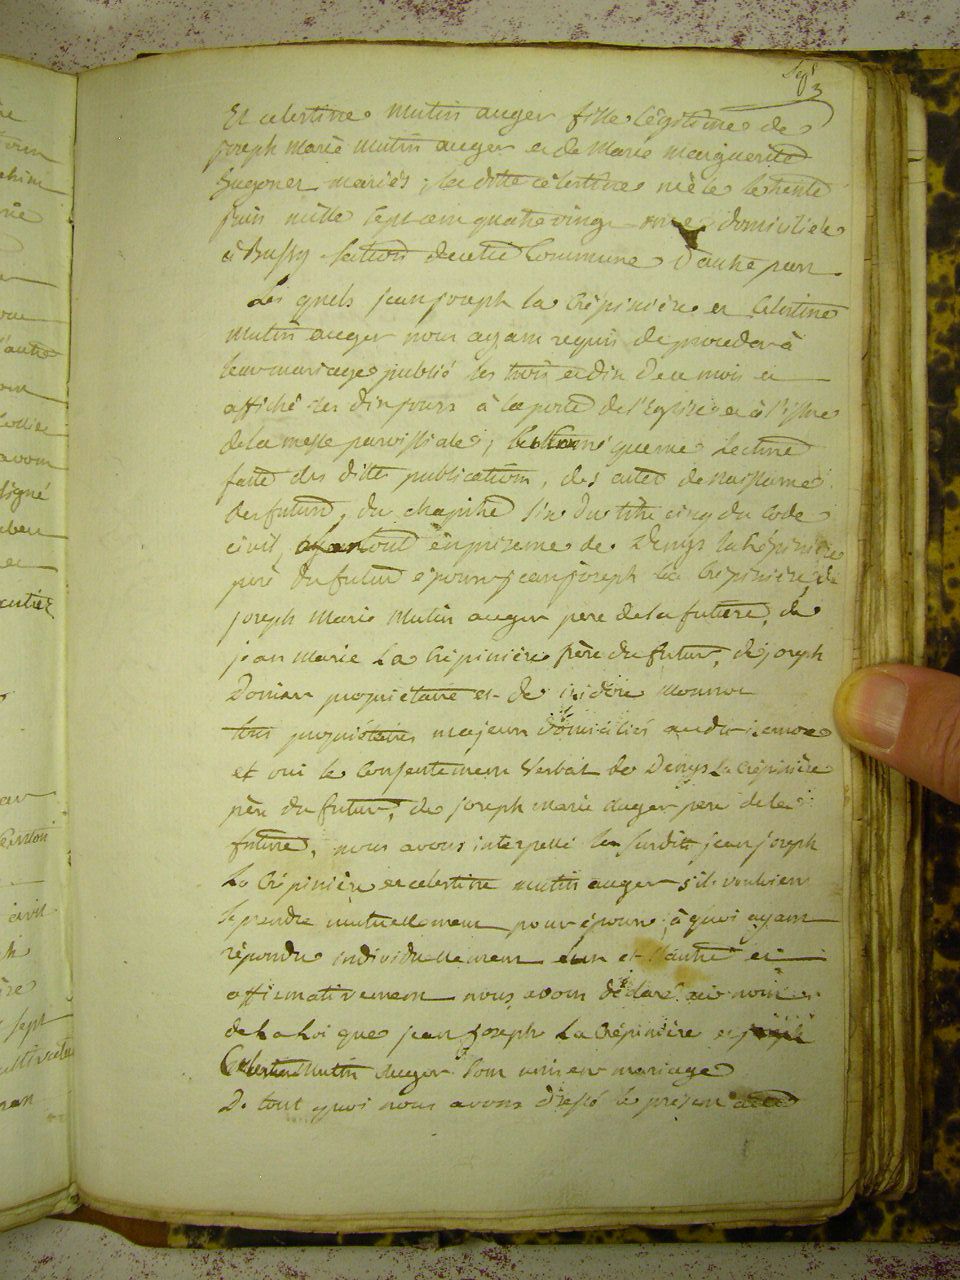 Sept
3
Et celestine mutin auger fille légitime de
joseph marie mutin auger et de marie marguerite
mariés, la ditte célestine née le trente
juin mille sept cent quatre vingt onze domiciliée
à Bussy section decette Commune d'autre part
Les quels jean joseph la Crépinière et Celestine
mutin auger nous ayant requis de proceder à
leur mariage publié les trois et dix de ce mois et
affiché les dix jours à la porte de l'Eglise et à l'issue
de la messe paroissiale, que me lecture
faitte des dittes publications, des actes de naissance
des futurs, du chapitre six du titre cinq du Code
civil, le tout en présence de Denys la Crépinière
père du futur époux jean joseph La Crépinière, de
joseph Marie Mutin auger pere de la future, de
jean Marie La Crépinière frère du futur, de joseph
Donier propriétaire et de isidore
tous propriétaires majeurs domiciliés
et oui le Consentement Verbal de Denys La Crépinière
père du futur, de joseph Marie auger pere de la
future, nous avons interpellé les surditts jean joseph
La Crépinière et celestine mutin auger s'ils vouloient
se prendre mutuellement pour époux, à quoi ayant
répondu individuellement l'un et l'autre et
affirmativement nous avons déclaré au nom
de La Loi que jean joseph La Crépinière et
Celestine Mutin auger sont unis en mariage
De tout quoi nous avons dressé le présent acte